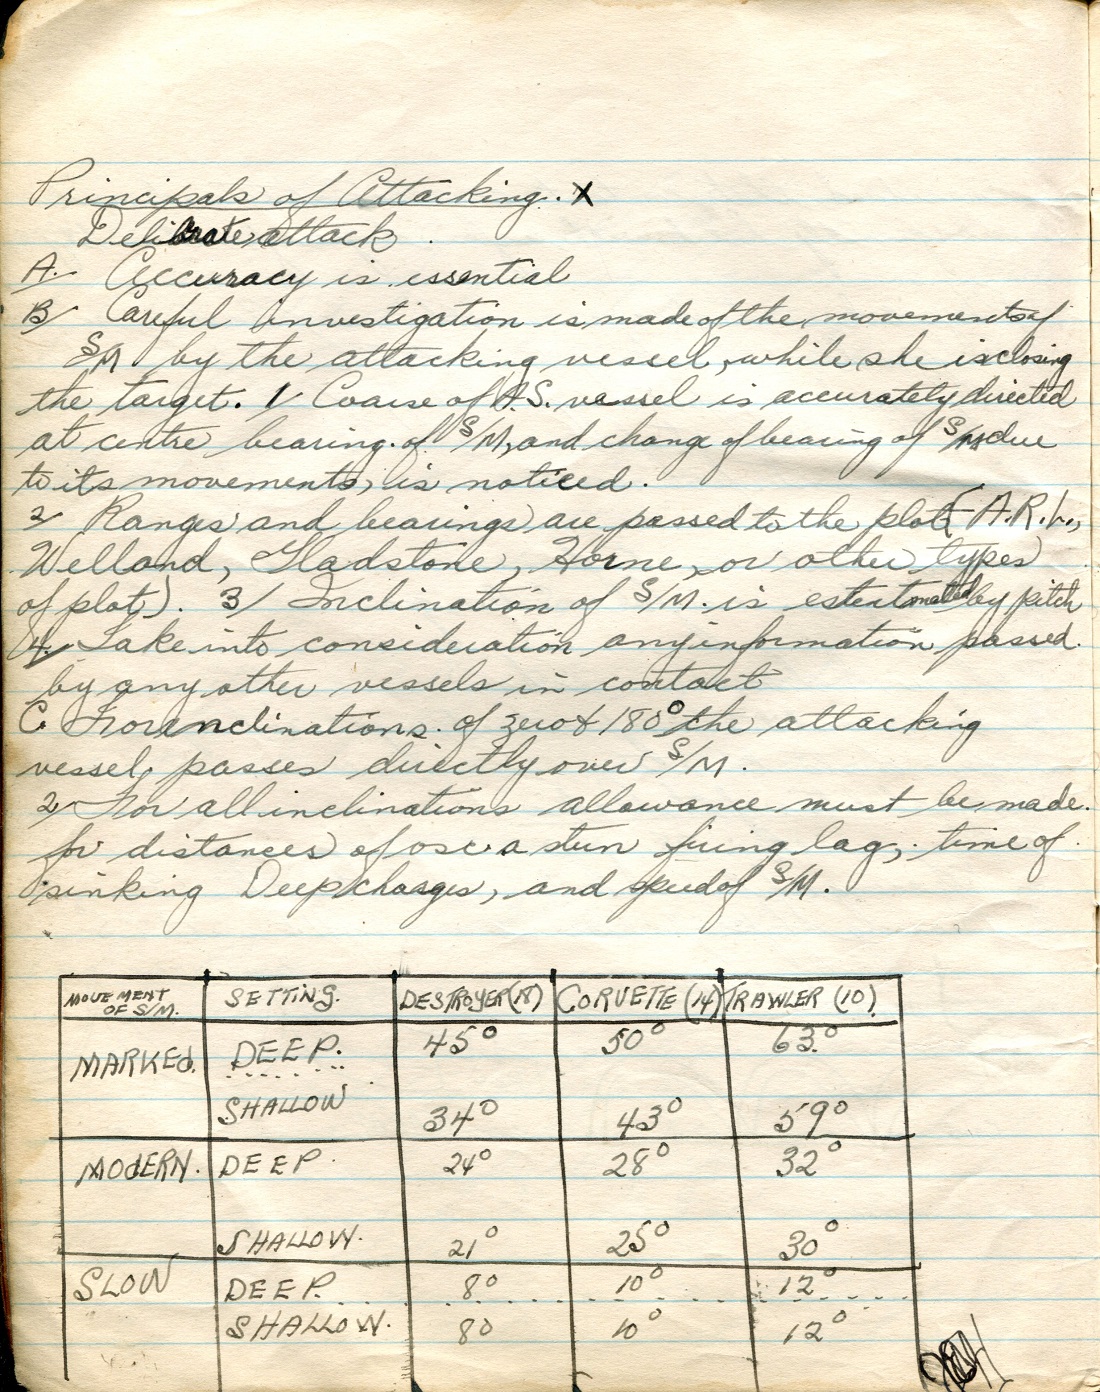 Principals of Attacking. X
Deliberate attack.
A. Accuracy is essential
B/ Careful investigation is made of the movements of
S/M by the attacking vessel, while she is closing
the target. 1/ Coarse of A.S. vessel is accurately directed
at centre bearing of S/M, and change of bearing of S/M due
to its movements, is noticed.
2/ Ranges and bearings are passed to the plot (A.R.L.,
Welland, Gladstone, Horne, or other types
of plot). 3/ Inclination of S/M. is by pitch
4/ Take into consideration any information passed.
by any other vessels in contact
C. For inclinations of zero & 180° the attacking
vessel, passes directly over S/M.
2/ For all inclinations allowance must be made.
for distances of osc a stern firing lag, time of
sinking Deep charges, and speed of S/M.
MOVEMENT OF S/M. SETTING. DESTROYER (18) CORVETTE (14) TRAWLER (10)
MARKED. DEEP. 45° 50° 63°
SHALLOW 34° 43° 59°
MODERN. DEEP. 24° 28° 32°
SHALLOW. 21° 25° 30°
SLOW DEEP. 8° 10° 12°
SHALLOW. 8° 10° 12°